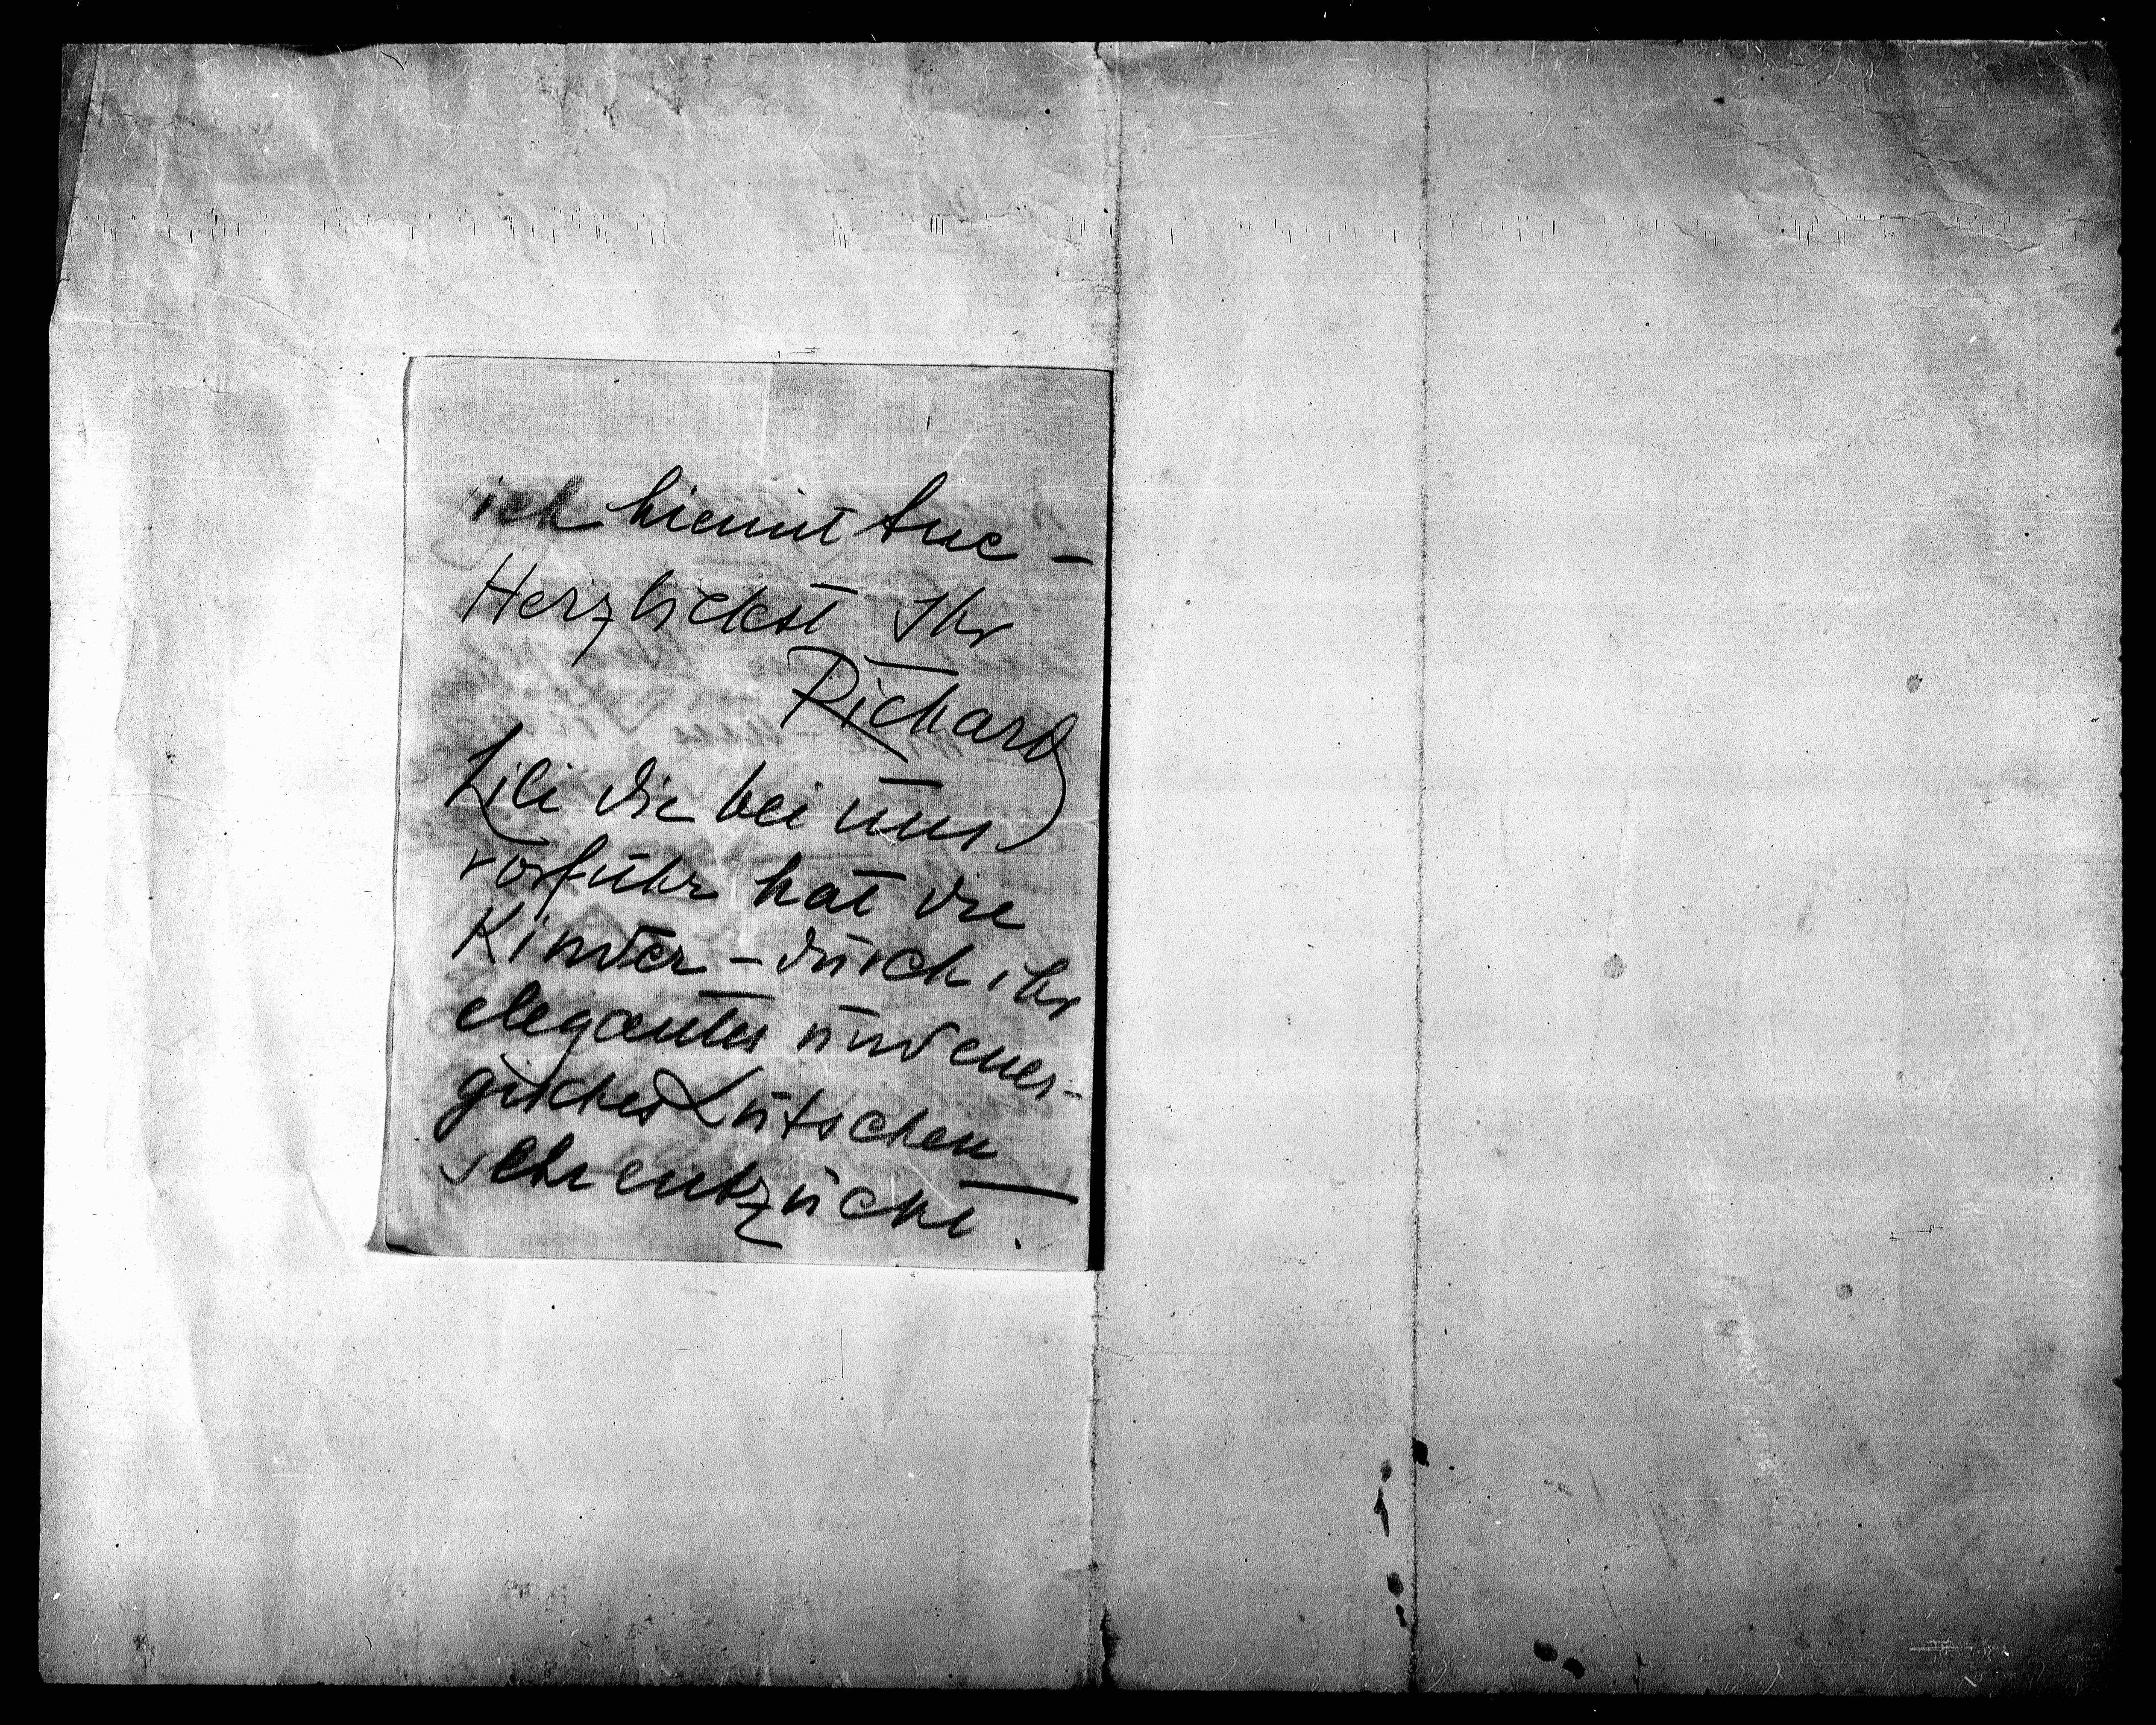 ich hiemit tue –
Herzlichst Ihr
Richard
Lili die bei uns
vorfuhr hat die
Kinder – durch ihr
elegantes und ener-
gisches Kutschen
sehr entzückt.